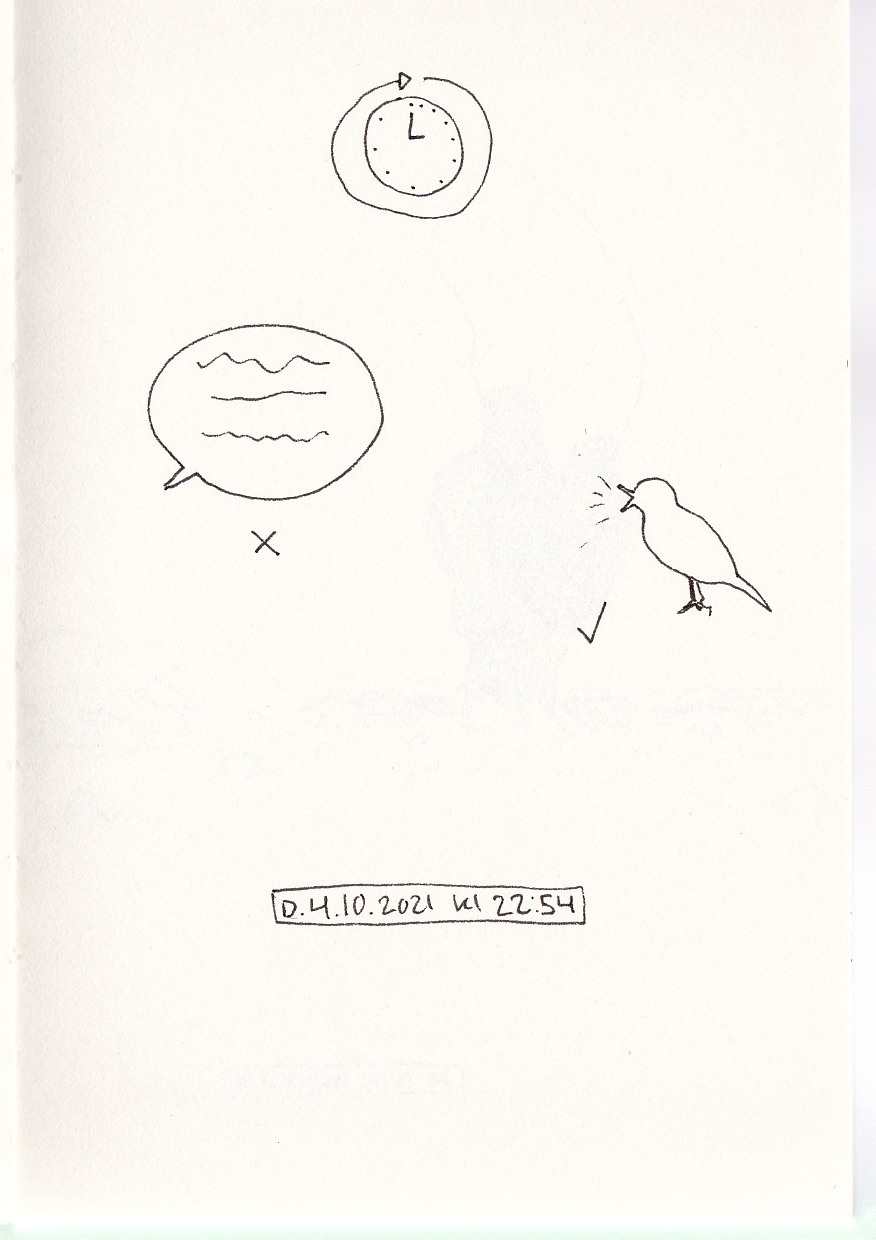 D. 4.10.2021 kl 22:54